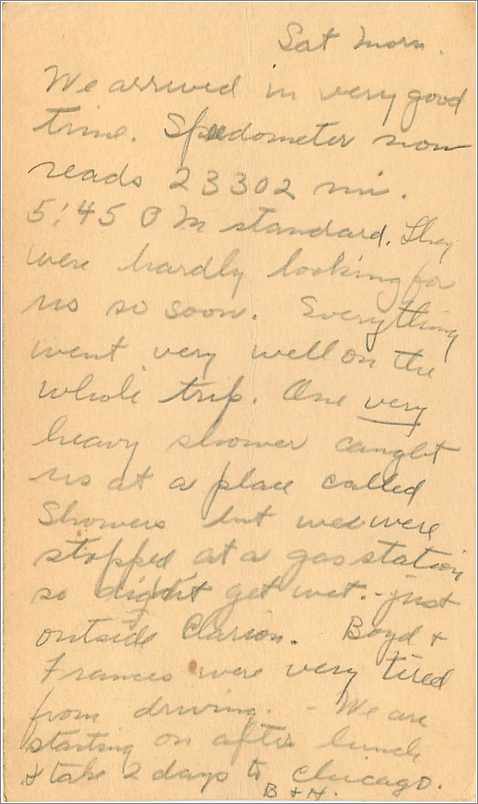 Sat Morn.
We arrived in very good
time. Speedometer now
reads 23302 mi.
5:45 P M standard. They
were hardly looking for
us so soon. Everything
went very well on the
whole trip. One very
heavy shower caught
us at a place called
Showers but we were
stopped at a gas station
so didn't get wet. - just
outside Clarion. Boyd +
Frances were very tired
from driving. - We are
starting on after lunch
& take 2 days to Chicago.
B + H.